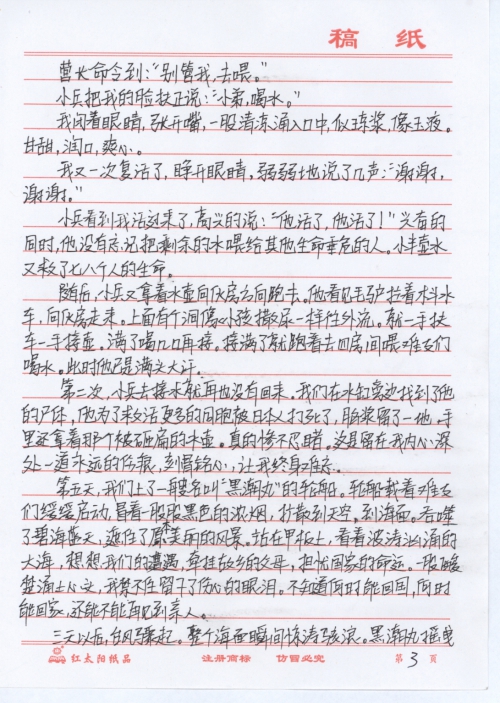 稿 纸
营长命令到：“别管我，去喂。”
小兵把我的脸扶正说：“小弟，喝水。”
我闭着眼睛，张开嘴，一股清冻涌入口中，似琼浆，像玉液。
甘甜，润口，爽心。
我又一次复活了，睁开眼睛，弱弱地说了几声：“谢谢，
谢谢。”
小兵看到我活过来了，高兴的说：“他活了，他活了！”兴奋的
同时，他没有忘记把剩余的水喂给其他生命垂危的人。小半壶水
又救了七八个人的生命。
随后，小兵又拿着水壶向伙房方向跑去。他看见毛驴拉着木斗水
车，向伙房走来。上面有个洞像小孩撒尿一样往外流。就一手扶
车一手接壶，满了喝几口再接。接满了就跑着去四房间喂难友们
喝水。此时他已是满头大汗。
第二次，小兵去接水就再也没有回来。我们在水缸旁边找到了他
的尸体，他为了救活更多的同胞被日本人打死了，脑浆留了一地。手
里还拿着那个被砸扁的水壶。真的惨不忍睹。这是留在我内心深
处一道永远的伤痕，刻骨铭心，让我终身难忘。
第五天，我们上了一艘名叫“黑潮丸”的轮船。轮船载着难友
们缓缓启动，冒着一股股黑色的浓烟，扩散到天空，到海面。吞噬
了碧海蓝天，遮住了原本美丽的风景。站在甲板上，看着波涛汹涌的
大海，想想我们的遭遇，牵挂故乡的父母，担忧国家的命运。一股酸
楚涌上心头，我禁不住留下了伤心的眼泪。不知道何时能回国，何时
能回家，还能不能再见到亲人。
三天以后，台风骤起。整个海面瞬间惊涛骇浪。黑潮丸摇曳
红太阳纸品 注册商标 仿冒必究 第 3 页